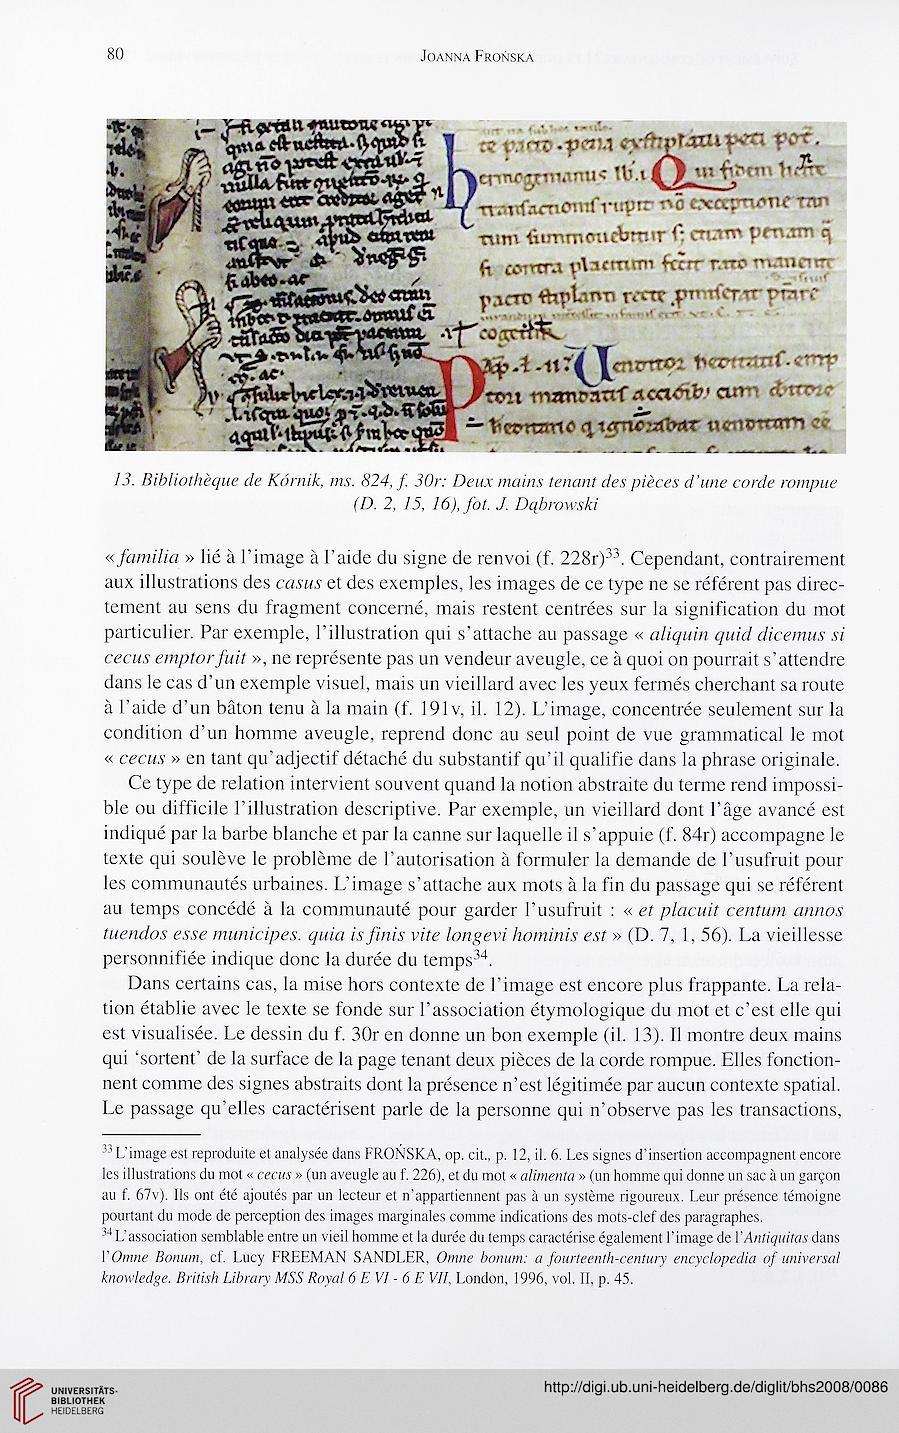 80
Joanna Frońska
13. Bibliothèque de Kórnik, ms. 824, f. 30r: Deux mains tenant des pièces d'une corde rompue
(D. 2, 15, 16), fot. J. Dąbrowski
« familia » lié à l'image à l'aide du signe de renvoi (f. 228r)³³. Cependant, contrairement
aux illustrations des casus et des exemples, les images de ce type ne se référent pas direc-
tement au sens du fragment concerné, mais restent centrées sur la signification du mot
particulier. Par exemple, l'illustration qui s'attache au passage « aliquin quid dicemus si
cecus emptor fuit », ne représente pas un vendeur aveugle, ce à quoi on pourrait s'attendre
dans le cas d'un exemple visuel, mais un vieillard avec les yeux fermés cherchant sa route
à l'aide d'un bâton tenu à la main (f. 191v, il. 12). L'image, concentrée seulement sur la
condition d'un homme aveugle, reprend donc au seul point de vue grammatical le mot
« cecus » en tant qu'adjectif détaché du substantif qu'il qualifie dans la phrase originale.
Ce type de relation intervient souvent quand la notion abstraite du terme rend impossi-
ble ou difficile l'illustration descriptive. Par exemple, un vieillard dont l'âge avancé est
indiqué par la barbe blanche et par la canne sur laquelle il s'appuie (f. 84r) accompagne le
texte qui soulève le problème de l'autorisation à formuler la demande de l'usufruit pour
les communautés urbaines. L'image s'attache aux mots à la fin du passage qui se référent
au temps concédé à la communauté pour garder l'usufruit : « et placuit centum annos
tuendos esse municipes. quia is finis vite longevi hominis est » (D. 7, 1, 56). La vieillesse
personnifiée indique donc la durée du temps³⁴.
Dans certains cas, la mise hors contexte de l'image est encore plus frappante. La rela-
tion établie avec le texte se fonde sur l'association étymologique du mot et c'est elle qui
est visualisée. Le dessin du f. 30r en donne un bon exemple (il. 13). Il montre deux mains
qui 'sortent' de la surface de la page tenant deux pièces de la corde rompue. Elles fonction-
nent comme des signes abstraits dont la présence n'est légitimée par aucun contexte spatial.
Le passage qu'elles caractérisent parle de la personne qui n'observe pas les transactions,
³³ L'image est reproduite et analysée dans FROŃSKA, op. cit., p. 12, il. 6. Les signes d'insertion accompagnent encore
les illustrations du mot « cecus » (un aveugle au f. 226), et du mot « alimenta » (un homme qui donne un sac à un garçon
au f. 67v). Ils ont été ajoutés par un lecteur et n'appartiennent pas à un système rigoureux. Leur présence témoigne
pourtant du mode de perception des images marginales comme indications des mots-clef des paragraphes.
³⁴ L'association semblable entre un vieil homme et la durée du temps caractérise également l'image de l'Antiquitas dans
l'Omne Bonum, cf. Lucy FREEMAN SANDLER, Omne bonum: a fourteenth-century encyclopedia of universal
knowledge. British Library MSS Royal 6 E VI - 6 E VII, London, 1996, vol. II, p. 45.
UNIVERSITÄTS-
BIBLIOTHEK
HEIDELBERG
http://digi.ub.uni-heidelberg.de/diglit/bhs2008/0086